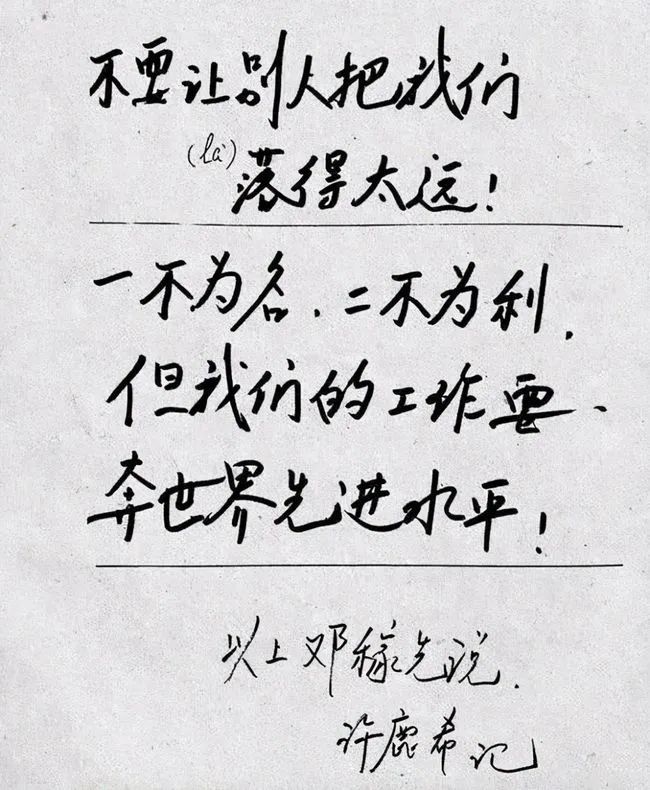 不要让别人把我们
(là)
落得太远！
一不为名、二不为利，
但我们的工作要、
奔世界先进水平！
以上邓稼先说.
许鹿希记